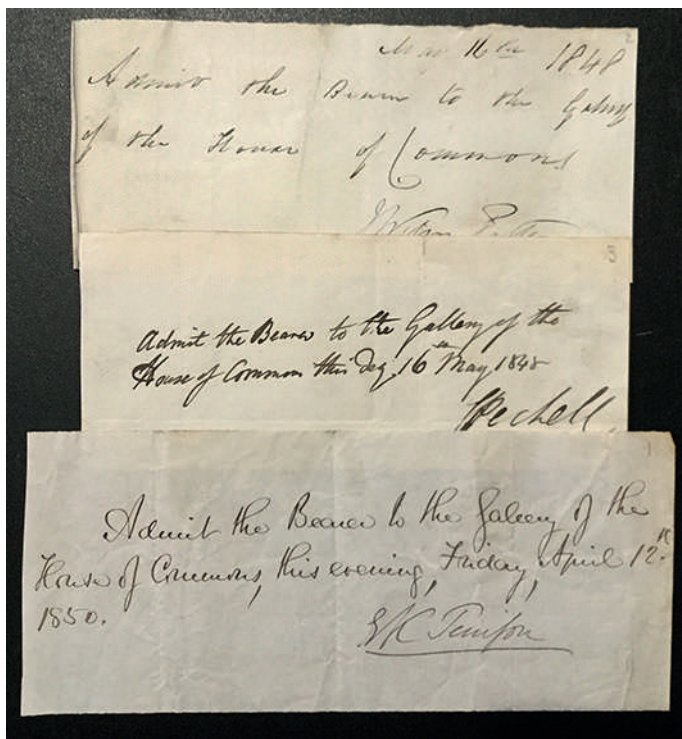 2
May 16th 1848
Admit the Bearer to the Gallery
of the House of Commons
3
Admit the Bearer to the Gallery of the
House of Common this Day 16th May 1848
Pechell
1
Admit the Bearer to the Gallery of the
House of Commons, this evening, Friday, April 12th
1850.
E K Tenison